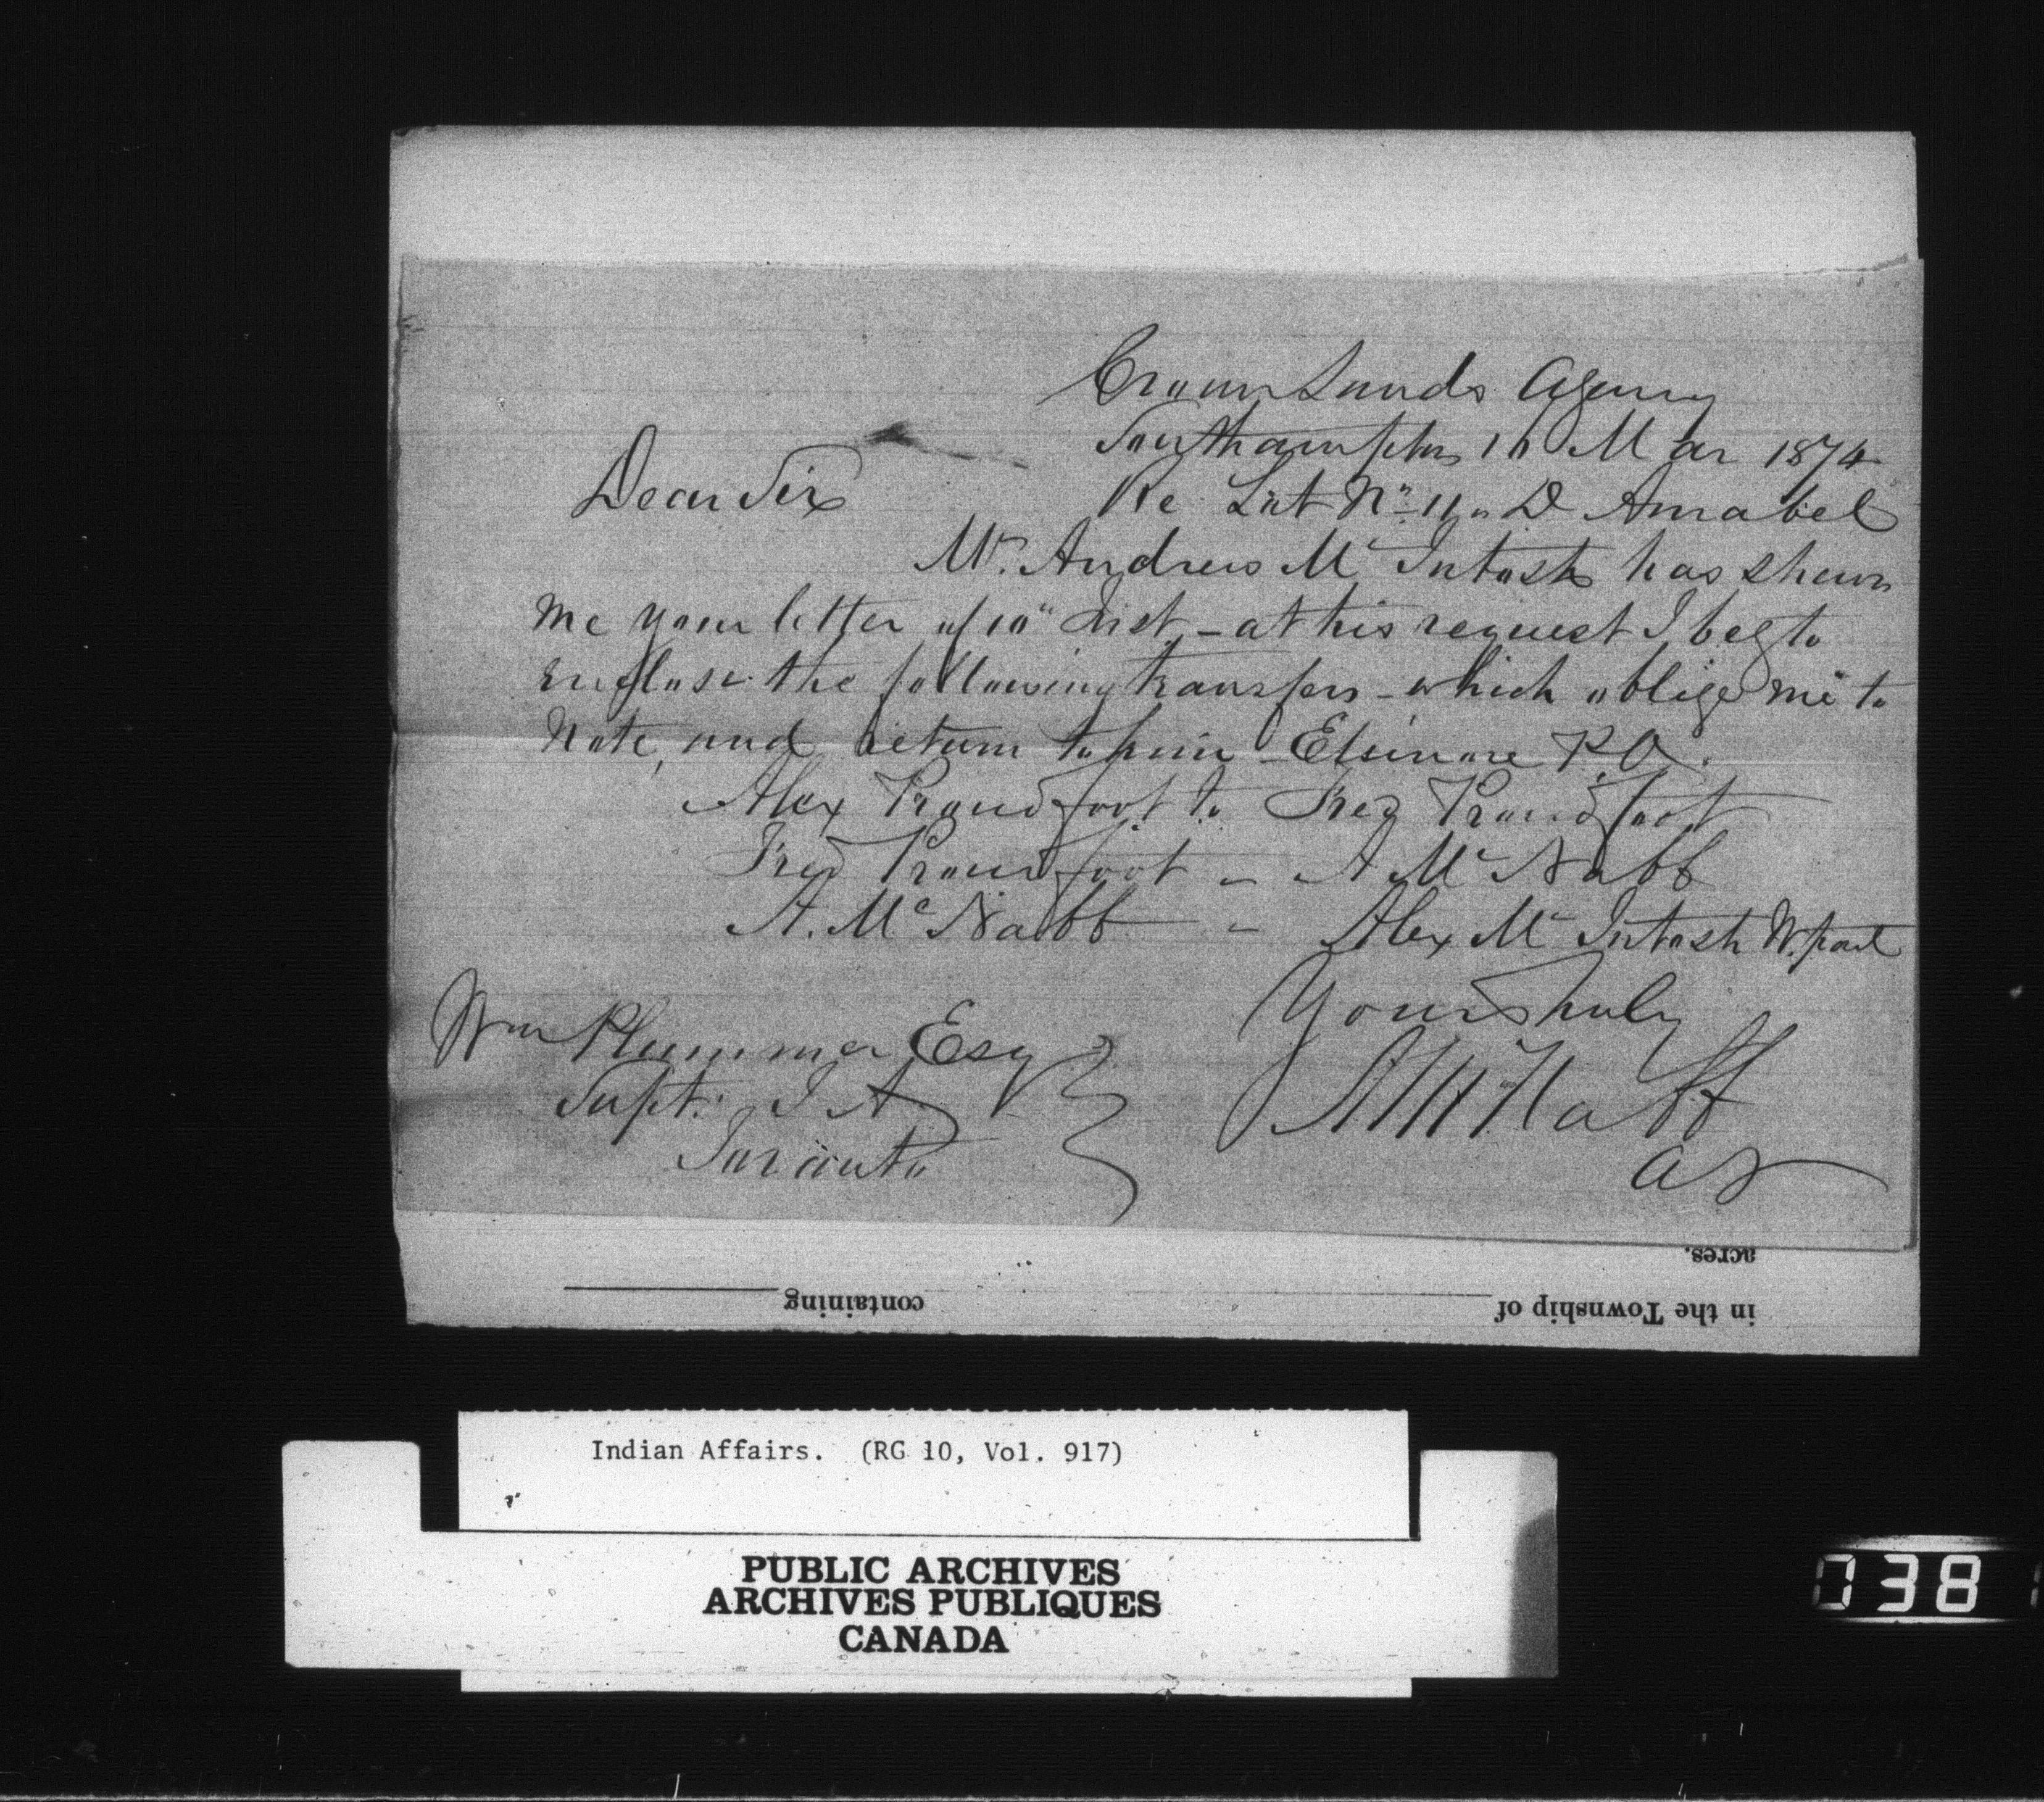 Crown Lands Agency
Southampton 1 Mar 1874
Dear Sir
Re Lot No 11 D Amabel
Mr. Andrew Mc Intosh has shewn
me your letter of 10" Inst - at his request I beg to
enclose the following transfers - which oblige me to
Note, and return to him - Elsinore P.O.
Alex Proudfoot to Fred Proudfoot
Fred Proudfoot - A Mc Nabb
A. Mc Nabb - Alex Mc Intosh W. part
Yours truly
Wm Plummer Esq
A McNabb
Supt. I A
Toronto
acres.
in the Township of containing
Indian Affairs. (RG 10, Vol. 917)
PUBLIC ARCHIVES
ARCHIVES PUBLIQUES
CANADA
038